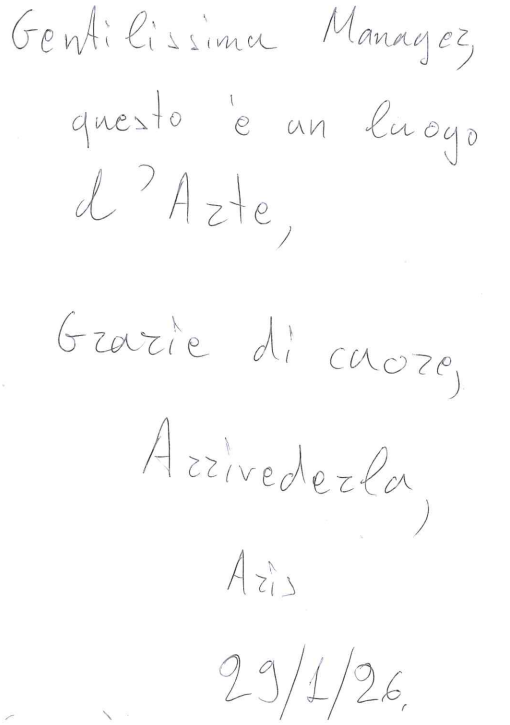 Gentilissima Manager,
questo è un luogo
d'Arte,
Grazie di cuore,
Arrivederla,
Aris
29/1/26.